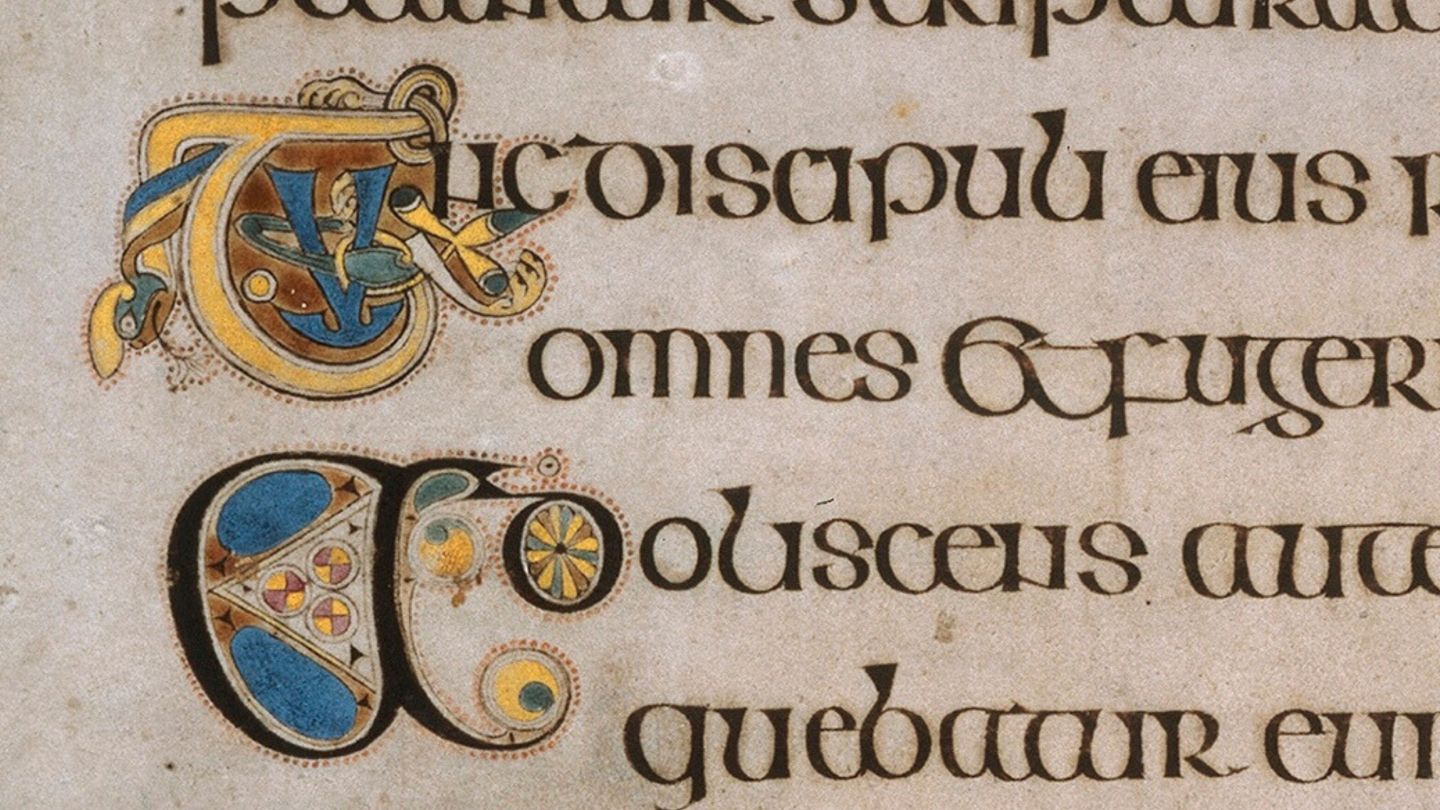 Tunc discipuli eius r
omnes & fuger
Adoliscens aute
quebatur eum